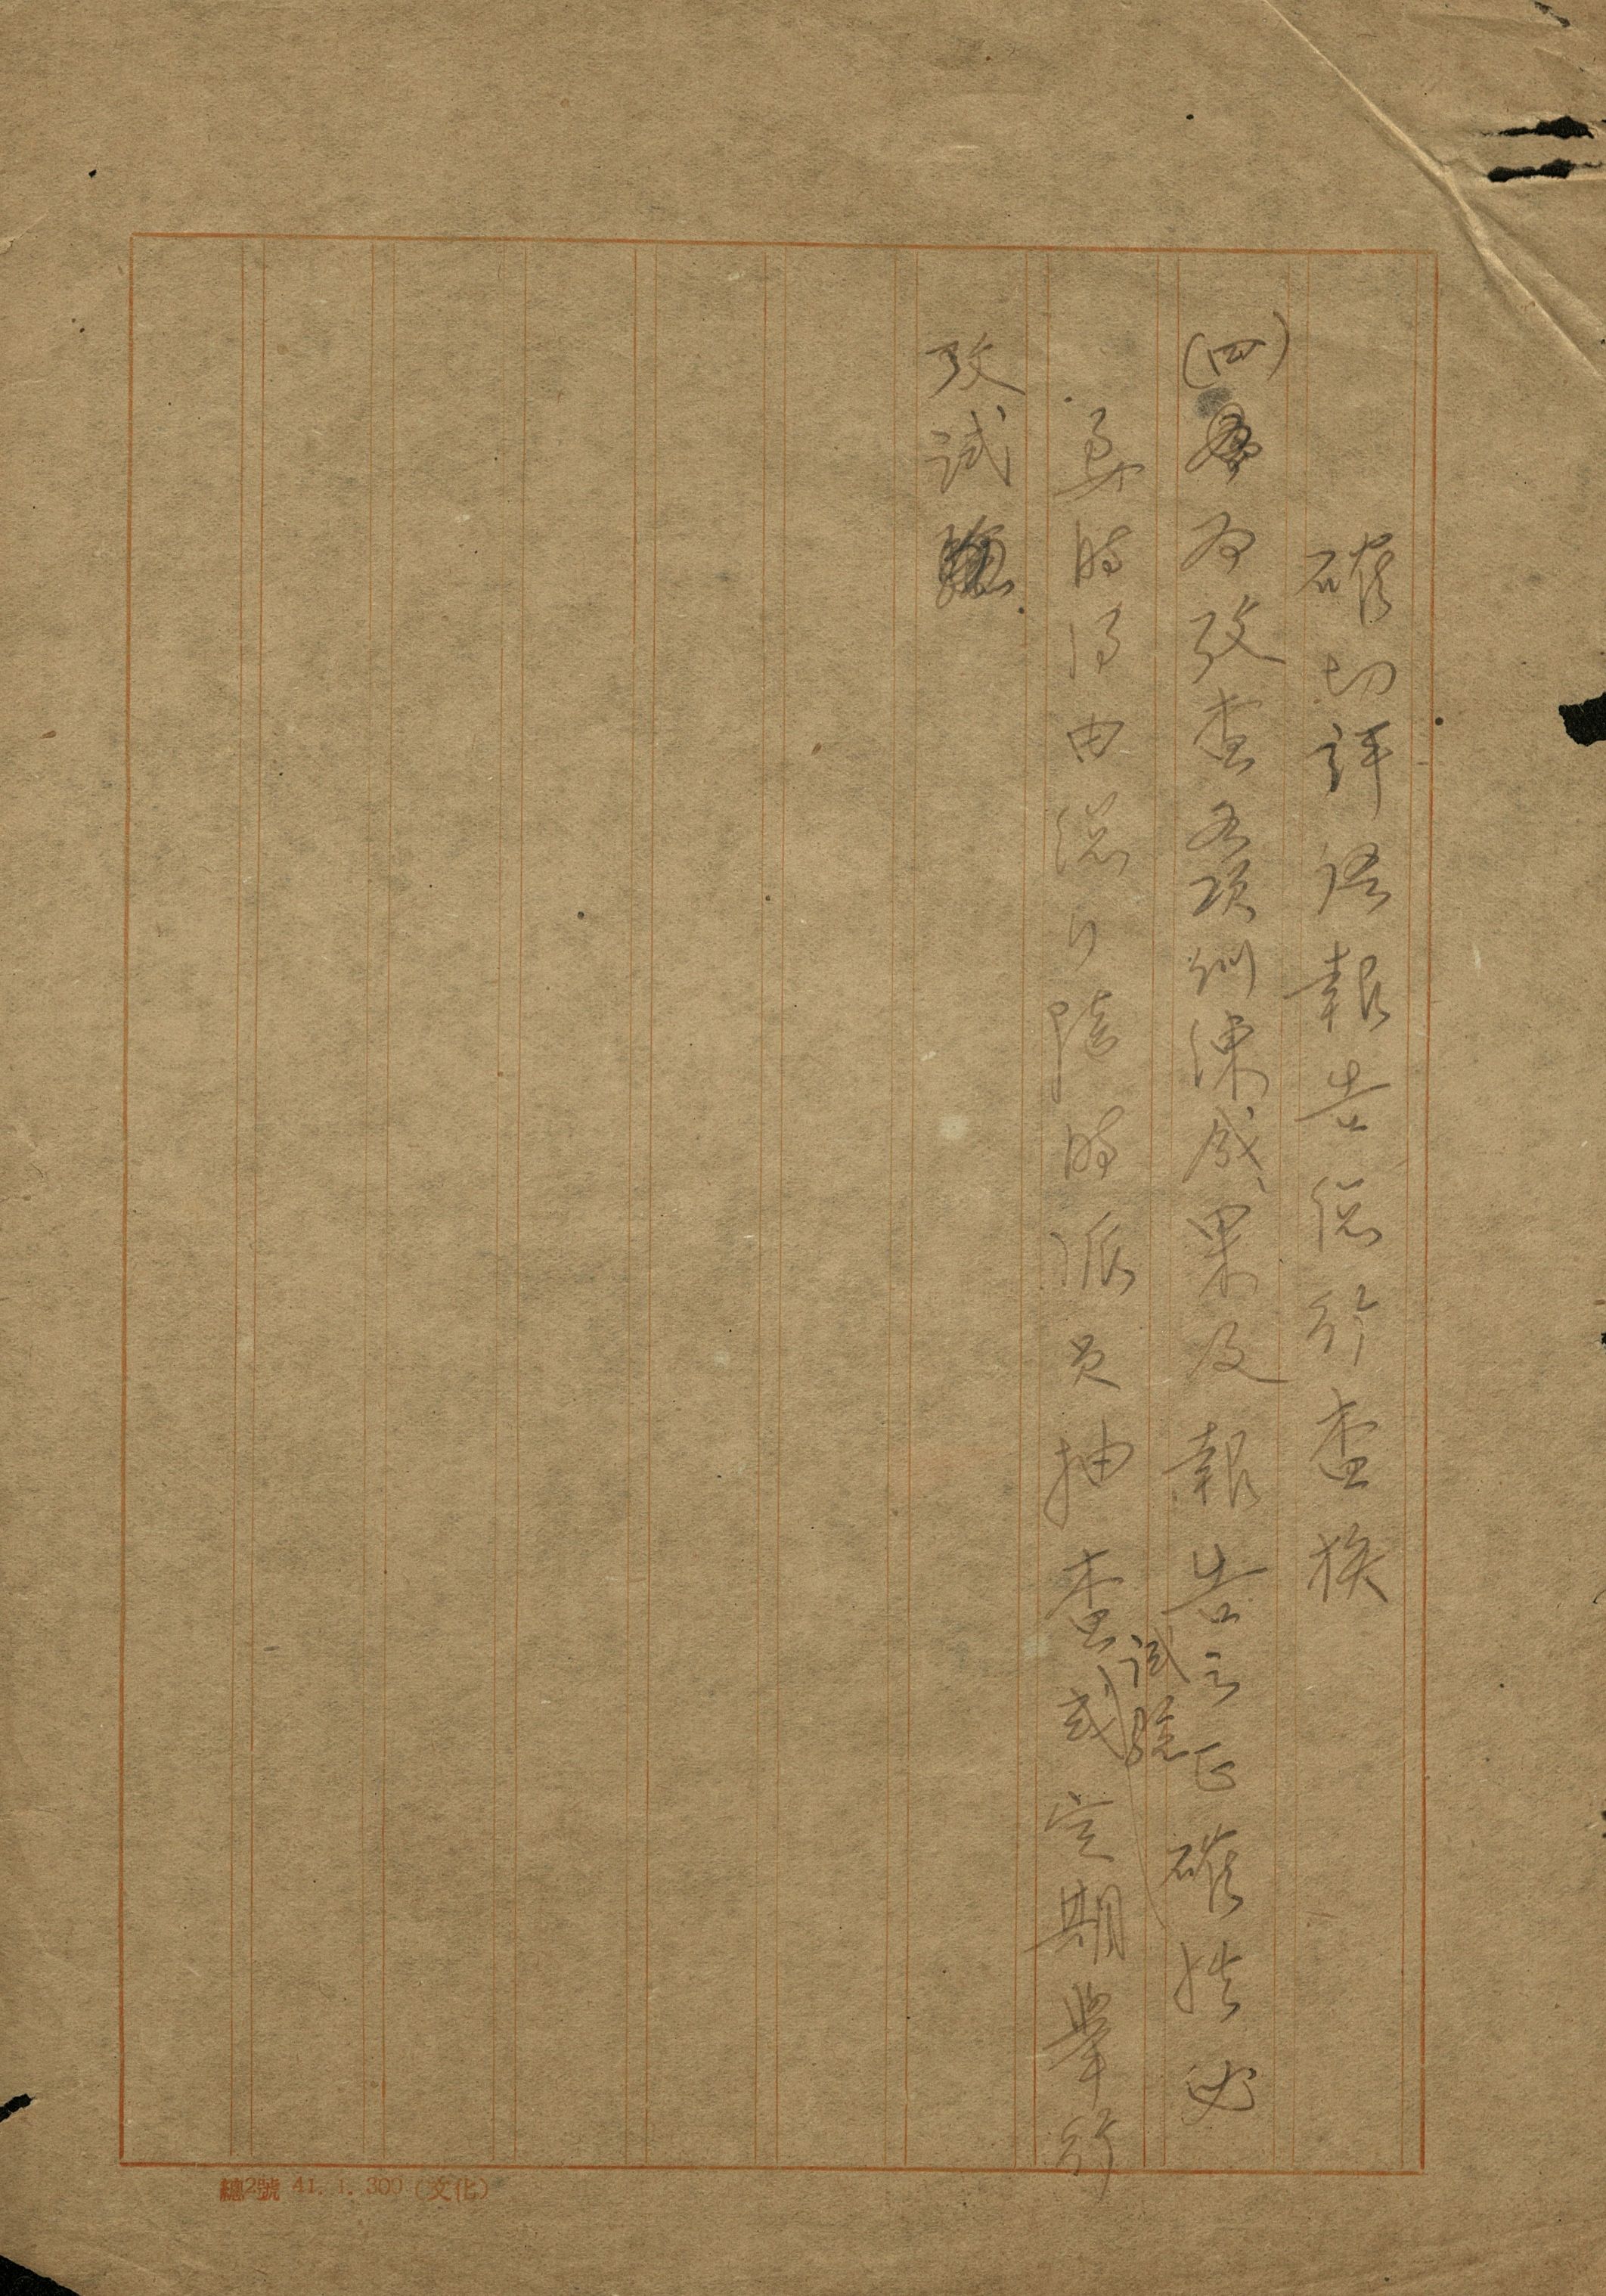 確切評語報告總行查核
(四)為攷查各項訓練成果及報告之正確性必
要時得由總行隨時派員抽查試驗或定期舉行
攷試
總2號 41. 1. 300 (文化)